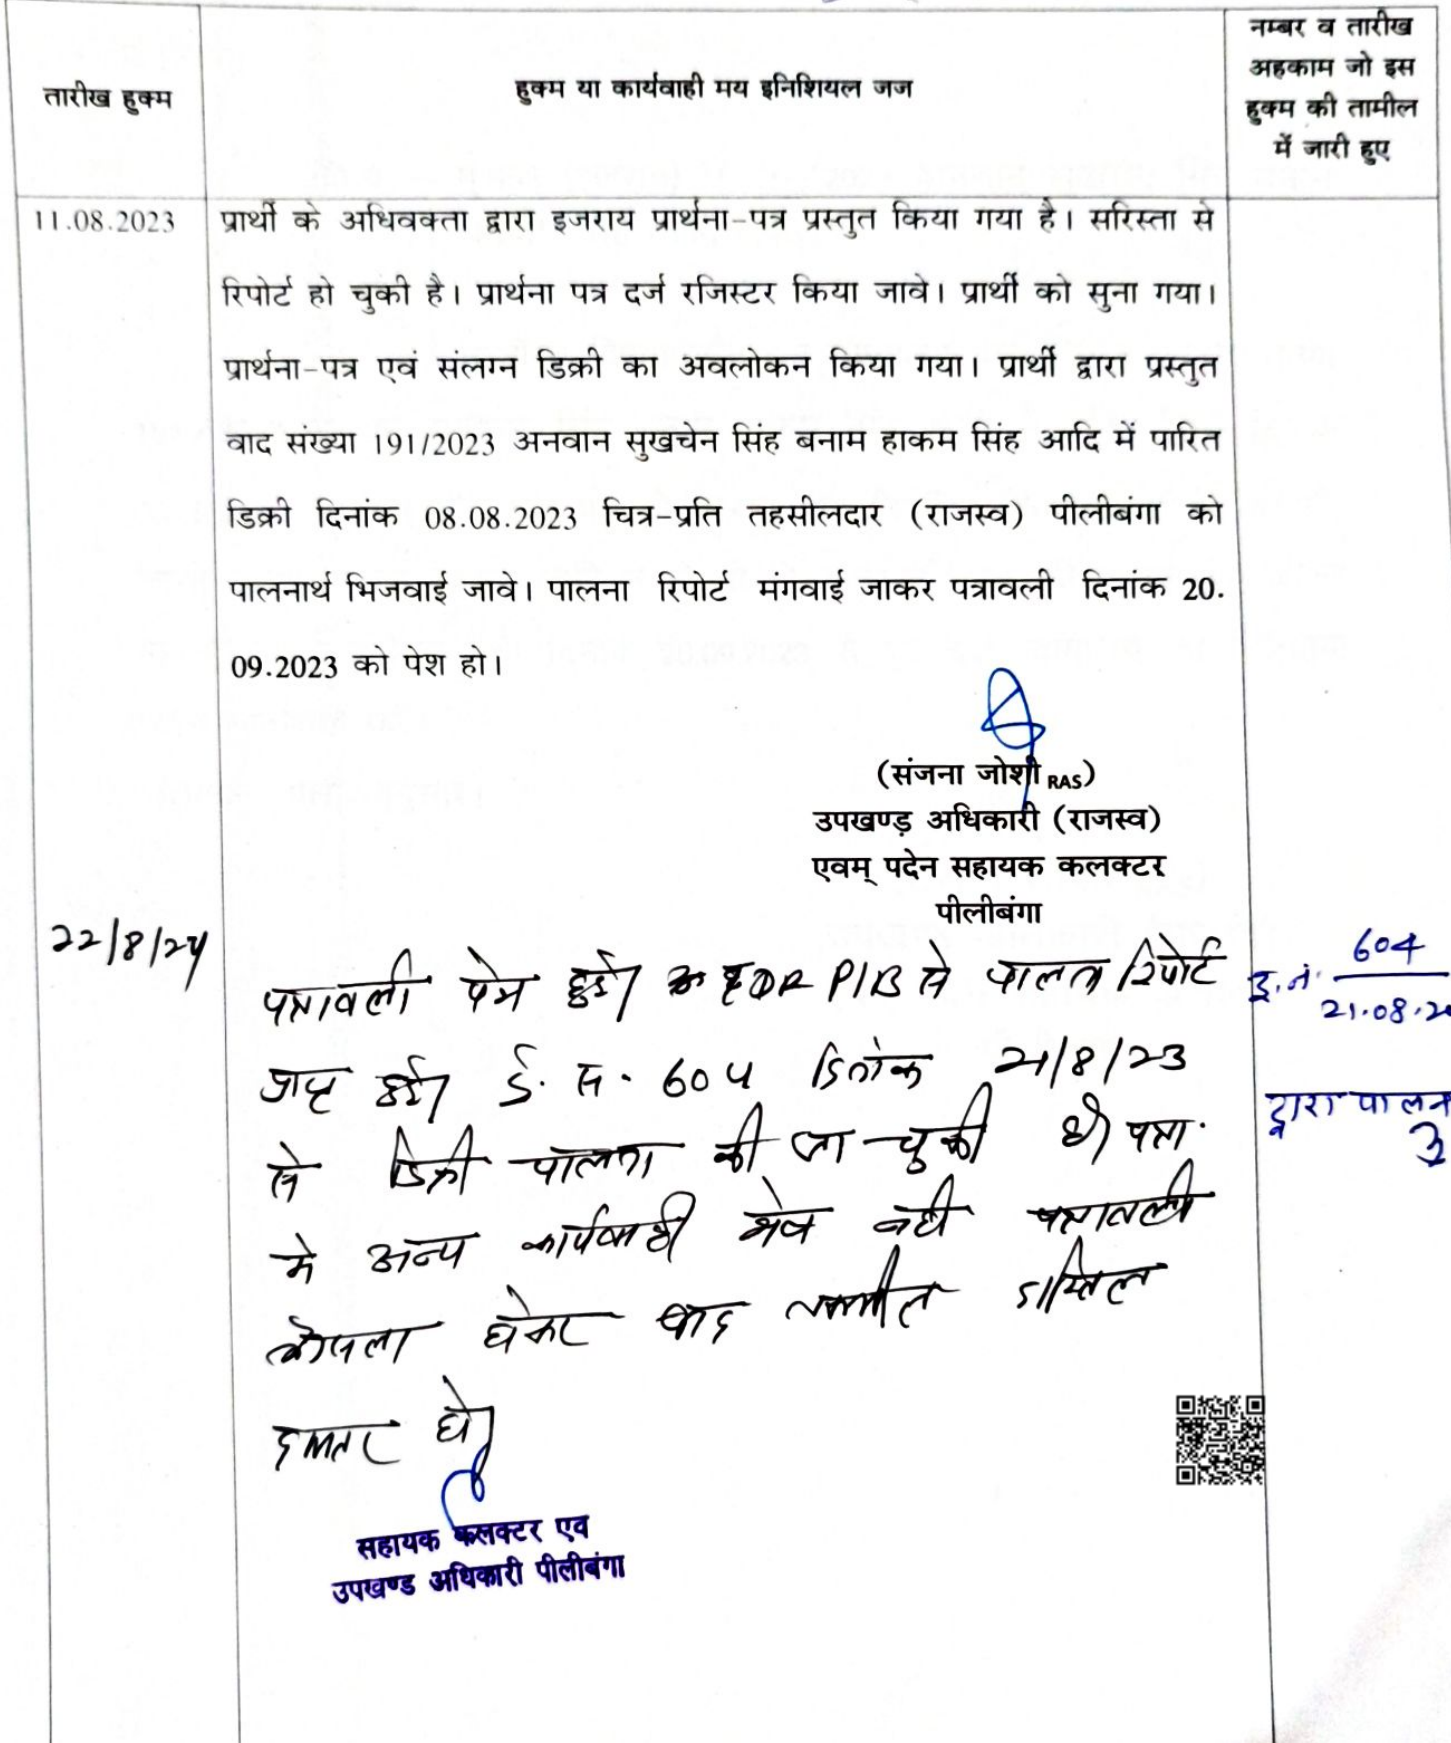 तारीख हुक्म
हुक्म या कार्यवाही मय इनिशियल जज
नम्बर व तारीख
अहकाम जो इस
हुक्म की तामील
में जारी हुए
11.08.2023
प्रार्थी के अधिवक्ता द्वारा इजराय प्रार्थना-पत्र प्रस्तुत किया गया है। सरिस्ता से
रिपोर्ट हो चुकी है। प्रार्थना पत्र दर्ज रजिस्टर किया जावे। प्रार्थी को सुना गया।
प्रार्थना-पत्र एवं संलग्न डिक्री का अवलोकन किया गया। प्रार्थी द्वारा प्रस्तुत
वाद संख्या 191/2023 अनवान सुखचेन सिंह बनाम हाकम सिंह आदि में पारित
डिक्री दिनांक 08.08.2023 चित्र-प्रति तहसीलदार (राजस्व) पीलीबंगा को
पालनार्थ भिजवाई जावे। पालना रिपोर्ट मंगवाई जाकर पत्रावली दिनांक 20.
09.2023 को पेश हो।
(संजना जोशी RAS)
उपखण्ड़ अधिकारी (राजस्व)
एवम् पदेन सहायक कलक्टर
पीलीबंगा
22/8/24
पत्रावली पेश हुई। से पालना रिपोर्ट
प्राप्त हुई। ई. स. 604 दिनांक 21/8/23
से डिक्री पालना की जा चुकी है। पत्रा.
मे अन्य कार्यवाही शेष नही पत्रावली
फैसला होकर बाद दाखिल
दफ्तर हो।
इ.नं. 604
21.08.2
द्वारा पालन
सहायक कलक्टर एव
उपखण्ड अधिकारी पीलीबंगा